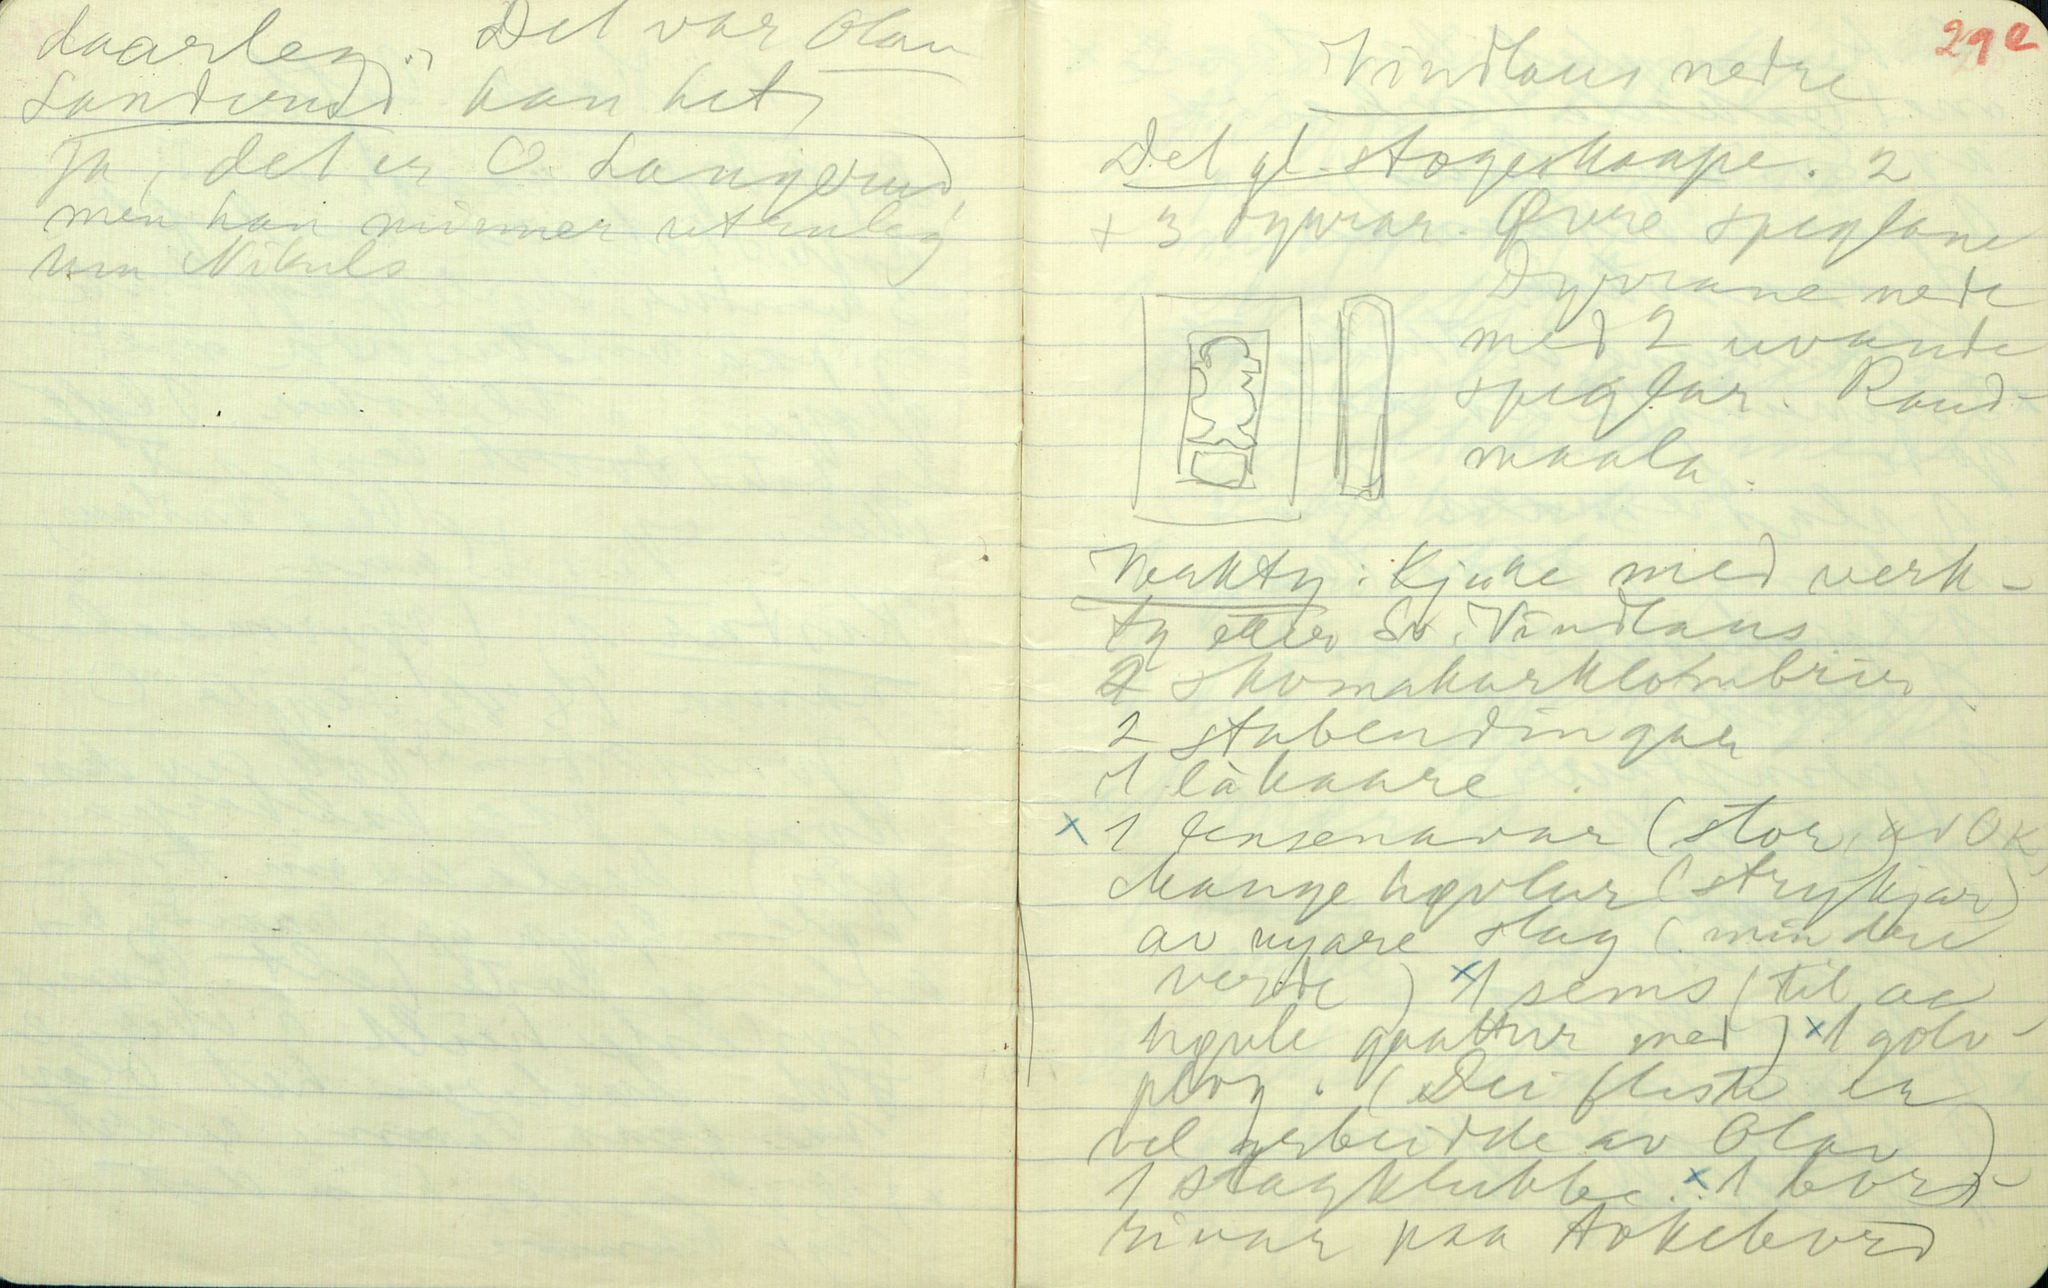 daarleg. Det var Olav
Sanderud han het,
Ja, det er O. Langerud,
men han minner utruleg
um Nikuls
29e
Vindlaus nedre
Det gl. stogeskaape. 2
+ 3 dyrrar. Øvre speglane
Dyrrane nede
med 2 uvande
speglar. Raud-
maala.
Verkty: Kjuke med verk-
ty etter Sv. Vindlaus
2 skomakarklombrur
2 stabendingar
1 låkaare.
x 1 lensenavar (stor, av OK)
Mange høvlar (strykjar)
av nyare slag (mindre
verde) x 1 sems (til ae
høvle gaattur med) x 1 golv-
plog. (Dei fleste er
vel arbeidde av Olav)
1 slagklubbe. x 1 bord-
rivar paa tokebord